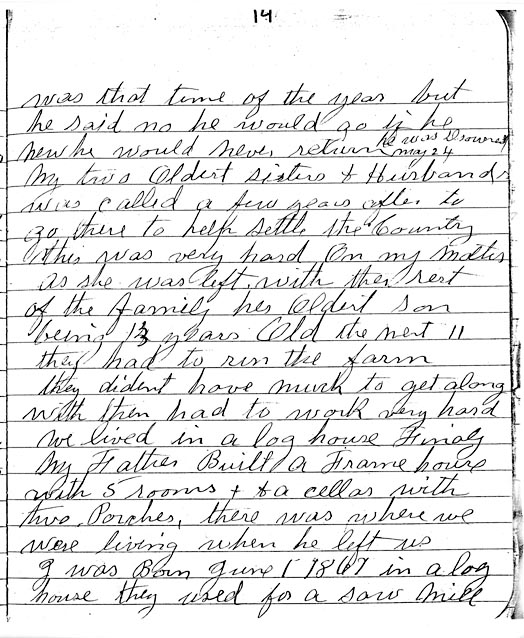 14
was that time of the year but
he said no he would go if he
new he would never return he was Drowned
may 24
My two Oldest sisters & Husbands
was called a few years after to
go there to help settle the Country
this was very hard On my Mother
as she was left with the rest
of the family her Oldest son
being 13 years Old the next 11
they had to run the farm
they dident have much to get along
with then had to work very hard
we lived in a log house Finaly
My Father Built a Frame house
with 5 rooms & a cellar with
two Porches, there was where we
were living when he left us
I was Born June 1 1867 in a log
house they used for a saw Mill